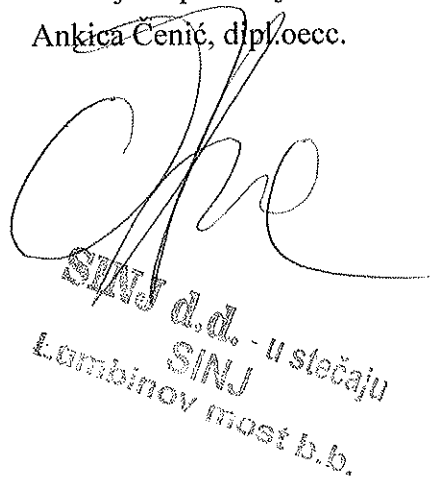 Ankica Čenić, dipl.oecc.
SINJ d.d. - u stečaju
SINJ
Lambinov most b.b.